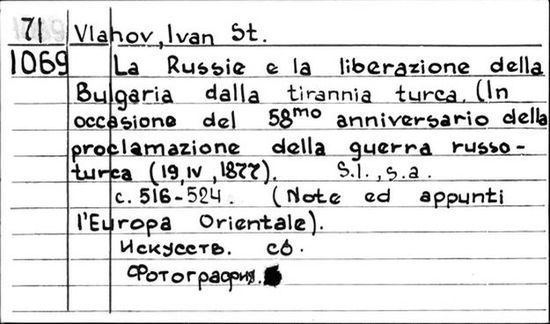 71 Vlahov, Ivan St.
1069 La Russie e la liberazione della
Bulgaria dalla tirannia turca. (In
occasione del 58mo anniversario della
proclamazione della guerra russo-
turca (19, IV, 1877). S.l., s.a.
c. 516-524. (Note ed appunti
l'Europa Orientale).
Искусств. сб.
Фотография.